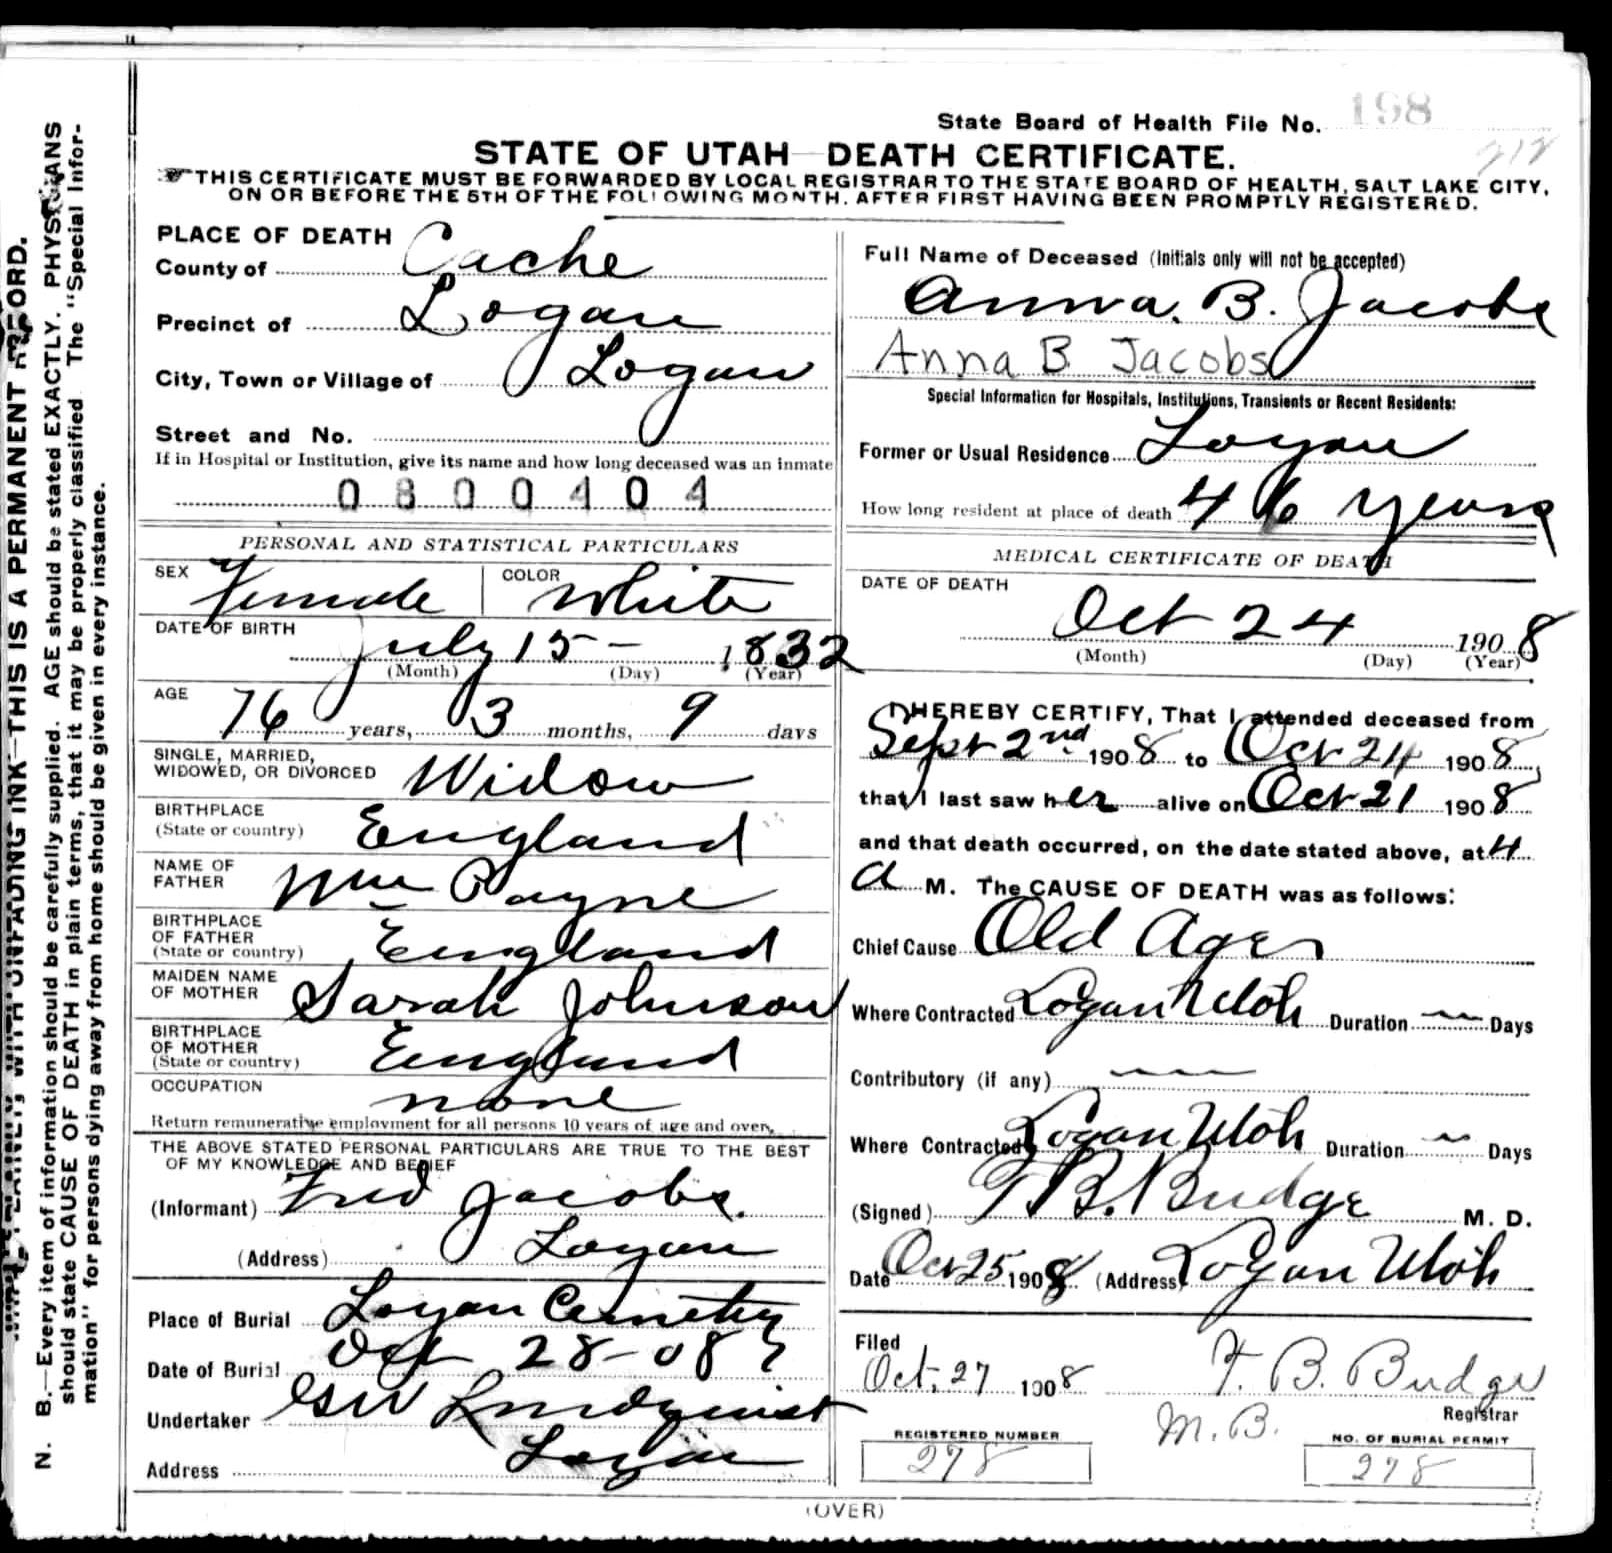 State Board of Health File No. 198
212
STATE OF UTAH—DEATH CERTIFICATE.
THIS CERTIFICATE MUST BE FORWARDED BY LOCAL REGISTRAR TO THE STATE BOARD OF HEALTH, SALT LAKE CITY,
ON OR BEFORE THE 5TH OF THE FOLLOWING MONTH, AFTER FIRST HAVING BEEN PROMPTLY REGISTERED.
PLACE OF DEATH
County of Cache
Precinct of Logan
City, Town or Village of Logan
Street and No.
If in Hospital or Institution, give its name and how long deceased was an inmate
0800404
PERSONAL AND STATISTICAL PARTICULARS
SEX Female COLOR White
DATE OF BIRTH July 15 – 1832
(Month) (Day) (Year)
AGE 76 years, 3 months, 9 days
SINGLE, MARRIED,
WIDOWED, OR DIVORCED Widow
BIRTHPLACE
(State or country) England
NAME OF
FATHER Wm Payne
BIRTHPLACE
OF FATHER
(State or country) England
MAIDEN NAME
OF MOTHER Sarah Johnson
BIRTHPLACE
OF MOTHER
(State or country) England
OCCUPATION none
Return remunerative employment for all persons 10 years of age and over.
THE ABOVE STATED PERSONAL PARTICULARS ARE TRUE TO THE BEST
OF MY KNOWLEDGE AND BELIEF
(Informant) Fred Jacobs.
(Address) Logan
Place of Burial Logan Cemetry
Date of Burial Oct 28-08
Undertaker Lindquist
Address Logan
Full Name of Deceased (Initials only will not be accepted)
Anna. B. Jacobs
Anna B Jacobs
Special Information for Hospitals, Institutions, Transients or Recent Residents:
Former or Usual Residence Logan
How long resident at place of death 46 years
MEDICAL CERTIFICATE OF DEATH
DATE OF DEATH
Oct 24 1908
(Month) (Day) (Year)
I HEREBY CERTIFY, That I attended deceased from
Sept 2nd 1908 to Oct 24 1908,
that I last saw her alive on Oct 21 1908
and that death occurred, on the date stated above, at 4
a M. The CAUSE OF DEATH was as follows:
Chief Cause Old Age
Where Contracted Logan Utah Duration — Days
Contributory (if any) —
Where Contracted Logan Utah Duration — Days
(Signed) T B. Budge M. D.
Date Oct 25 1908 (Address) Logan Utah
Filed
Oct. 27 1908 T. B. Budge
Registrar
M.B.
REGISTERED NUMBER
278
NO. OF BURIAL PERMIT
278
(OVER)
WRITE PLAINLY, WITH UNFADING INK—THIS IS A PERMANENT RECORD.
N. B.—Every item of information should be carefully supplied. AGE should be stated EXACTLY. PHYSICIANS
should state CAUSE OF DEATH in plain terms, that it may be properly classified. The "Special Infor-
mation" for persons dying away from home should be given in every instance.